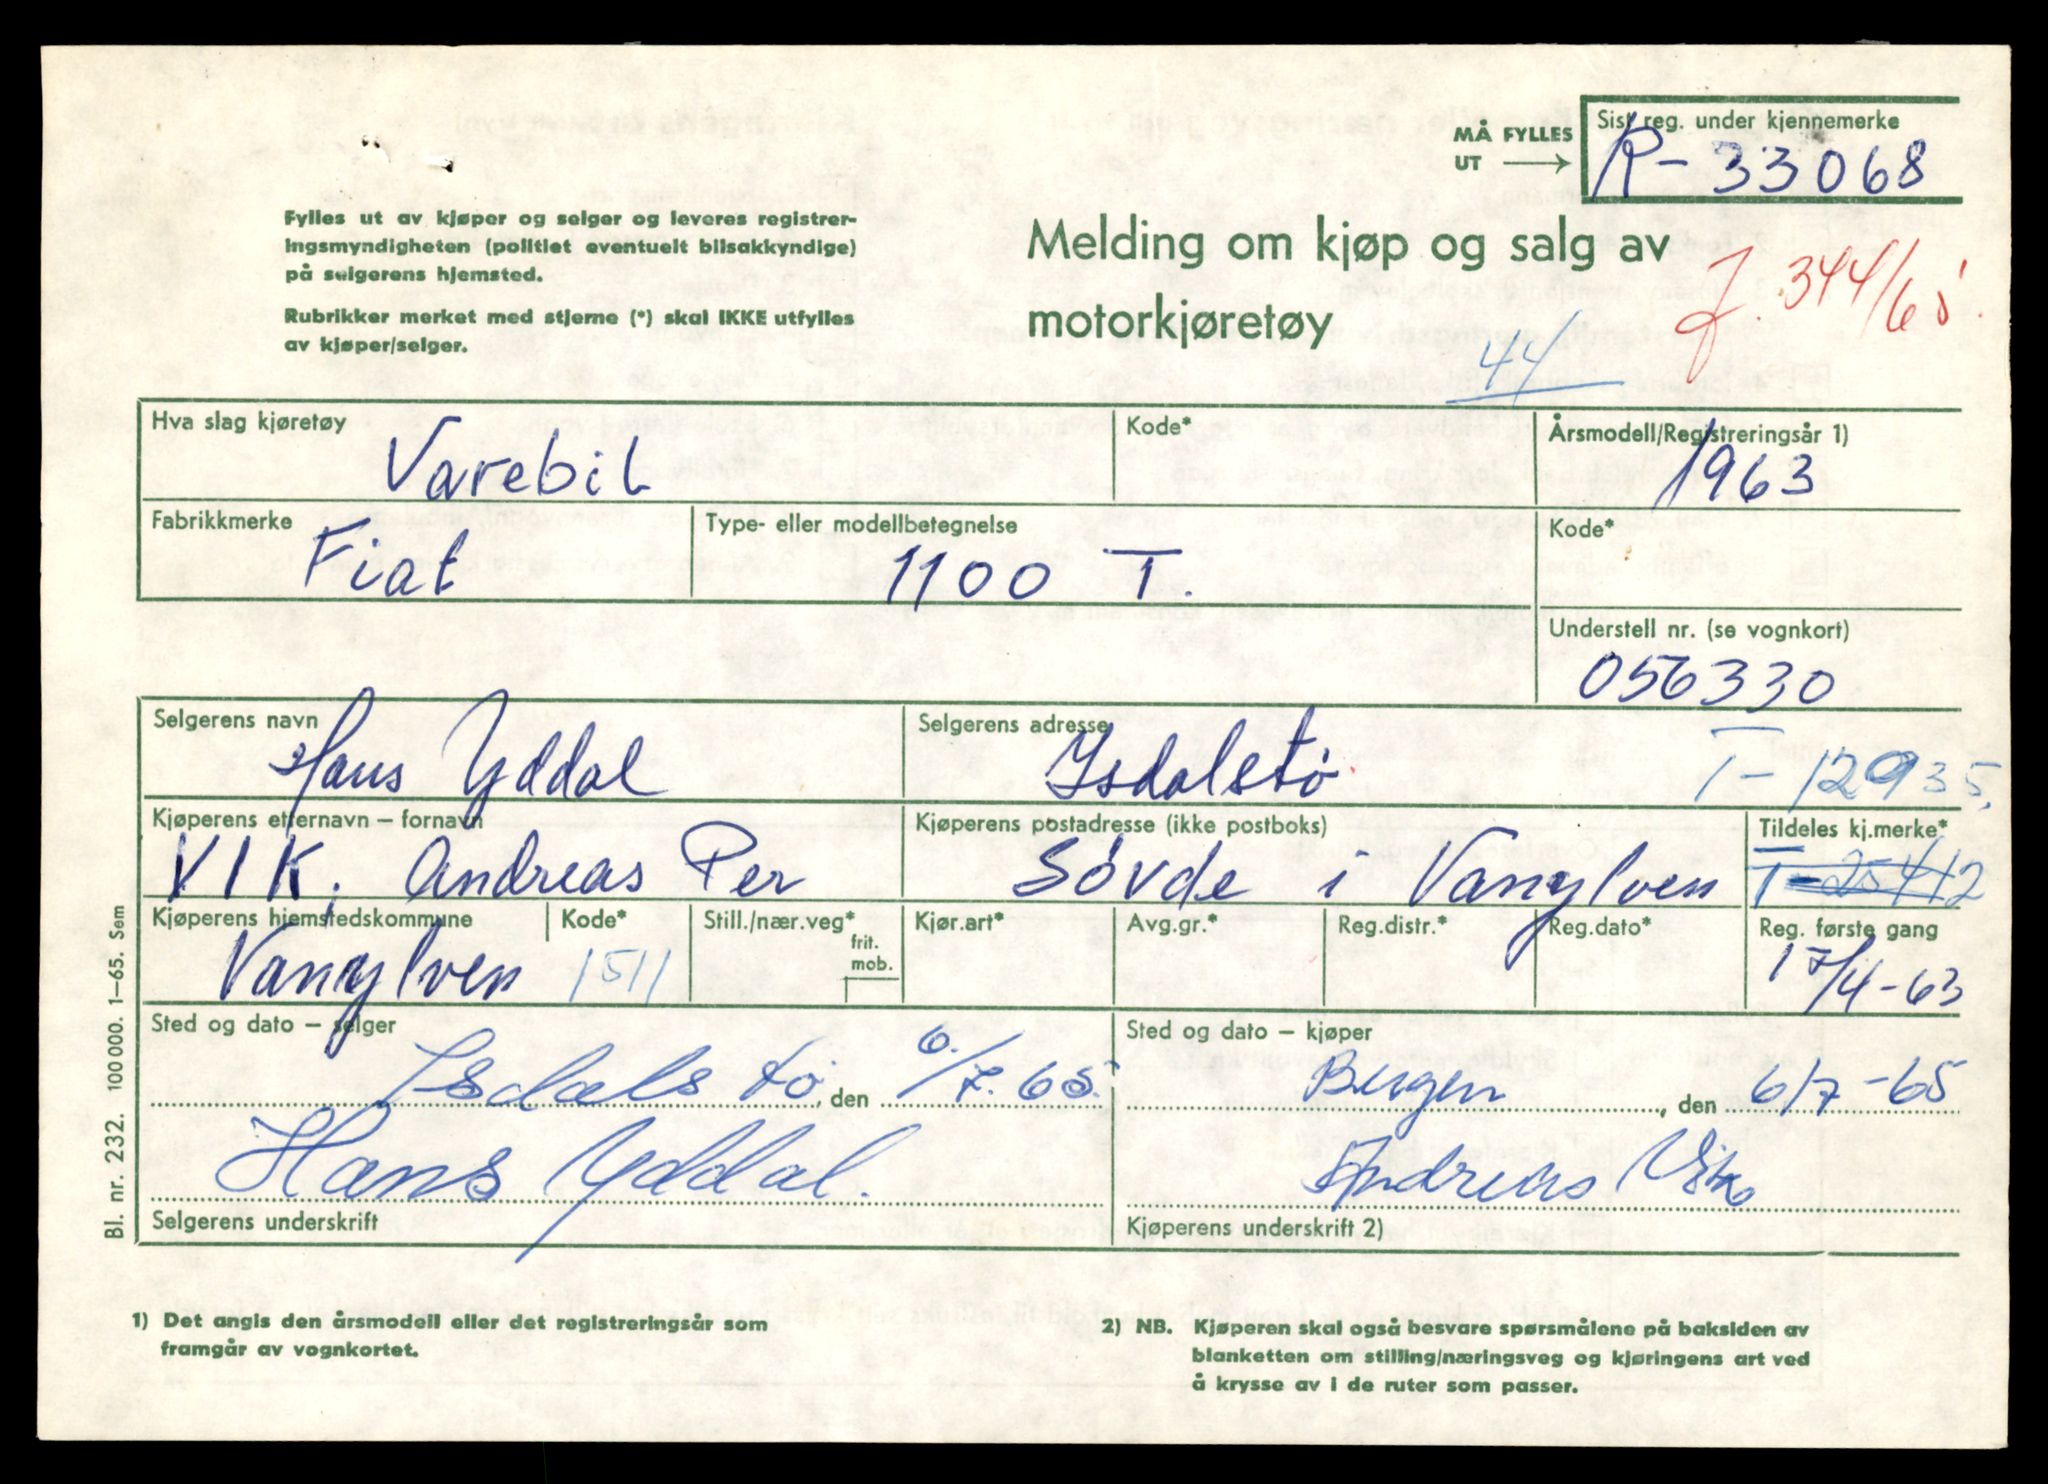 MÅ FYLLES
UT
Sist reg. under kjennemerke
R-33068
Fylles ut av kjøper og selger og leveres registrer-
ingsmyndigheten (politiet eventuelt bilsakkyndige)
på selgerens hjemsted.
Rubrikker merket med stjerne (*) skal IKKE utfylles
av kjøper/selger.
Melding om kjøp og salg av
motorkjøretøy
J. 344/65.
44/
Hva slag kjøretøy
Varebil
Kode*
Årsmodell/Registreringsår 1)
1963
Fabrikkmerke
Fiat
Type- eller modellbetegnelse
1100 T.
Kode*
Understell nr. (se vognkort)
056330
Selgerens navn
Hans Yddal
Selgerens adresse
Isdalstø
T-12935.
Kjøperens etternavn – fornavn
VIK, Andreas Per
Kjøperens postadresse (ikke postboks)
Søvde i Vanylven
Tildeles kj.merke*
T-25412
Kjøperens hjemstedskommune
Vanylven
Kode*
1511
Still./nær.veg*
frit.
mob.
Kjør.art*
Avg.gr.*
Reg.distr.*
Reg.dato*
Reg. første gang
17/4-63
Sted og dato – selger
Isdalstø, den 6/7.65.
Sted og dato – kjøper
Bergen, den 6/7-65
Hans Yddal.
Andreas Vik
Selgerens underskrift
Kjøperens underskrift 2)
Bl. nr. 232. 100 000. 1–65. Sem
1) Det angis den årsmodell eller det registreringsår som
framgår av vognkortet.
2) NB. Kjøperen skal også besvare spørsmålene på baksiden av
blanketten om stilling/næringsveg og kjøringens art ved
å krysse av i de ruter som passer.